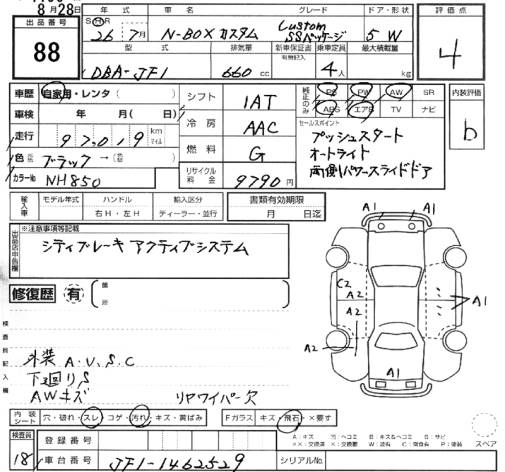 8月28日
出品番号 年式 車名 グレード ドア・形状 評価点
88 S H R 26年 7月 N-BOX カスタム Custom SSパッケージ 5 W 4
型式 排気量 新車保証書 乗車定員 最大積載量
有無記入
DBA-JF1 660 cc 4人 kg
車歴 自家用・レンタ ( )
車検 年 月( 日)
走行 97,019 km マイル
色 ブラック → ( )
カラーNo NH850
シフト 1AT
冷房 AAC
燃料 G
リサイクル料金 9790 円
純正のみ PS PW AW SR
ABS エアB TV ナビ
内装評価
b
セールスポイント
プッシュスタート
オートライト
両側パワースライドドア
輸入車 モデル年式 ハンドル 輸入区分 書類有効期限
右H・左H ディーラー・並行 月 日迄
出品店申告欄 ※注意事項等記載
シティブレーキアクティブシステム
修復歴 有
検査員記入欄
外装 A.U.S.C
下廻りS
AWキズ リヤワイパー欠
A1 A1
C2
A2
A2
A2
A1
A1
内装シート 穴・破れ・スレ コゲ・汚れ・キズ・黄ばみ Fガラス キズ 飛石・×要す
検査員 登録番号
18 車台番号 JF1-1462529 シリアルNo.
スペア